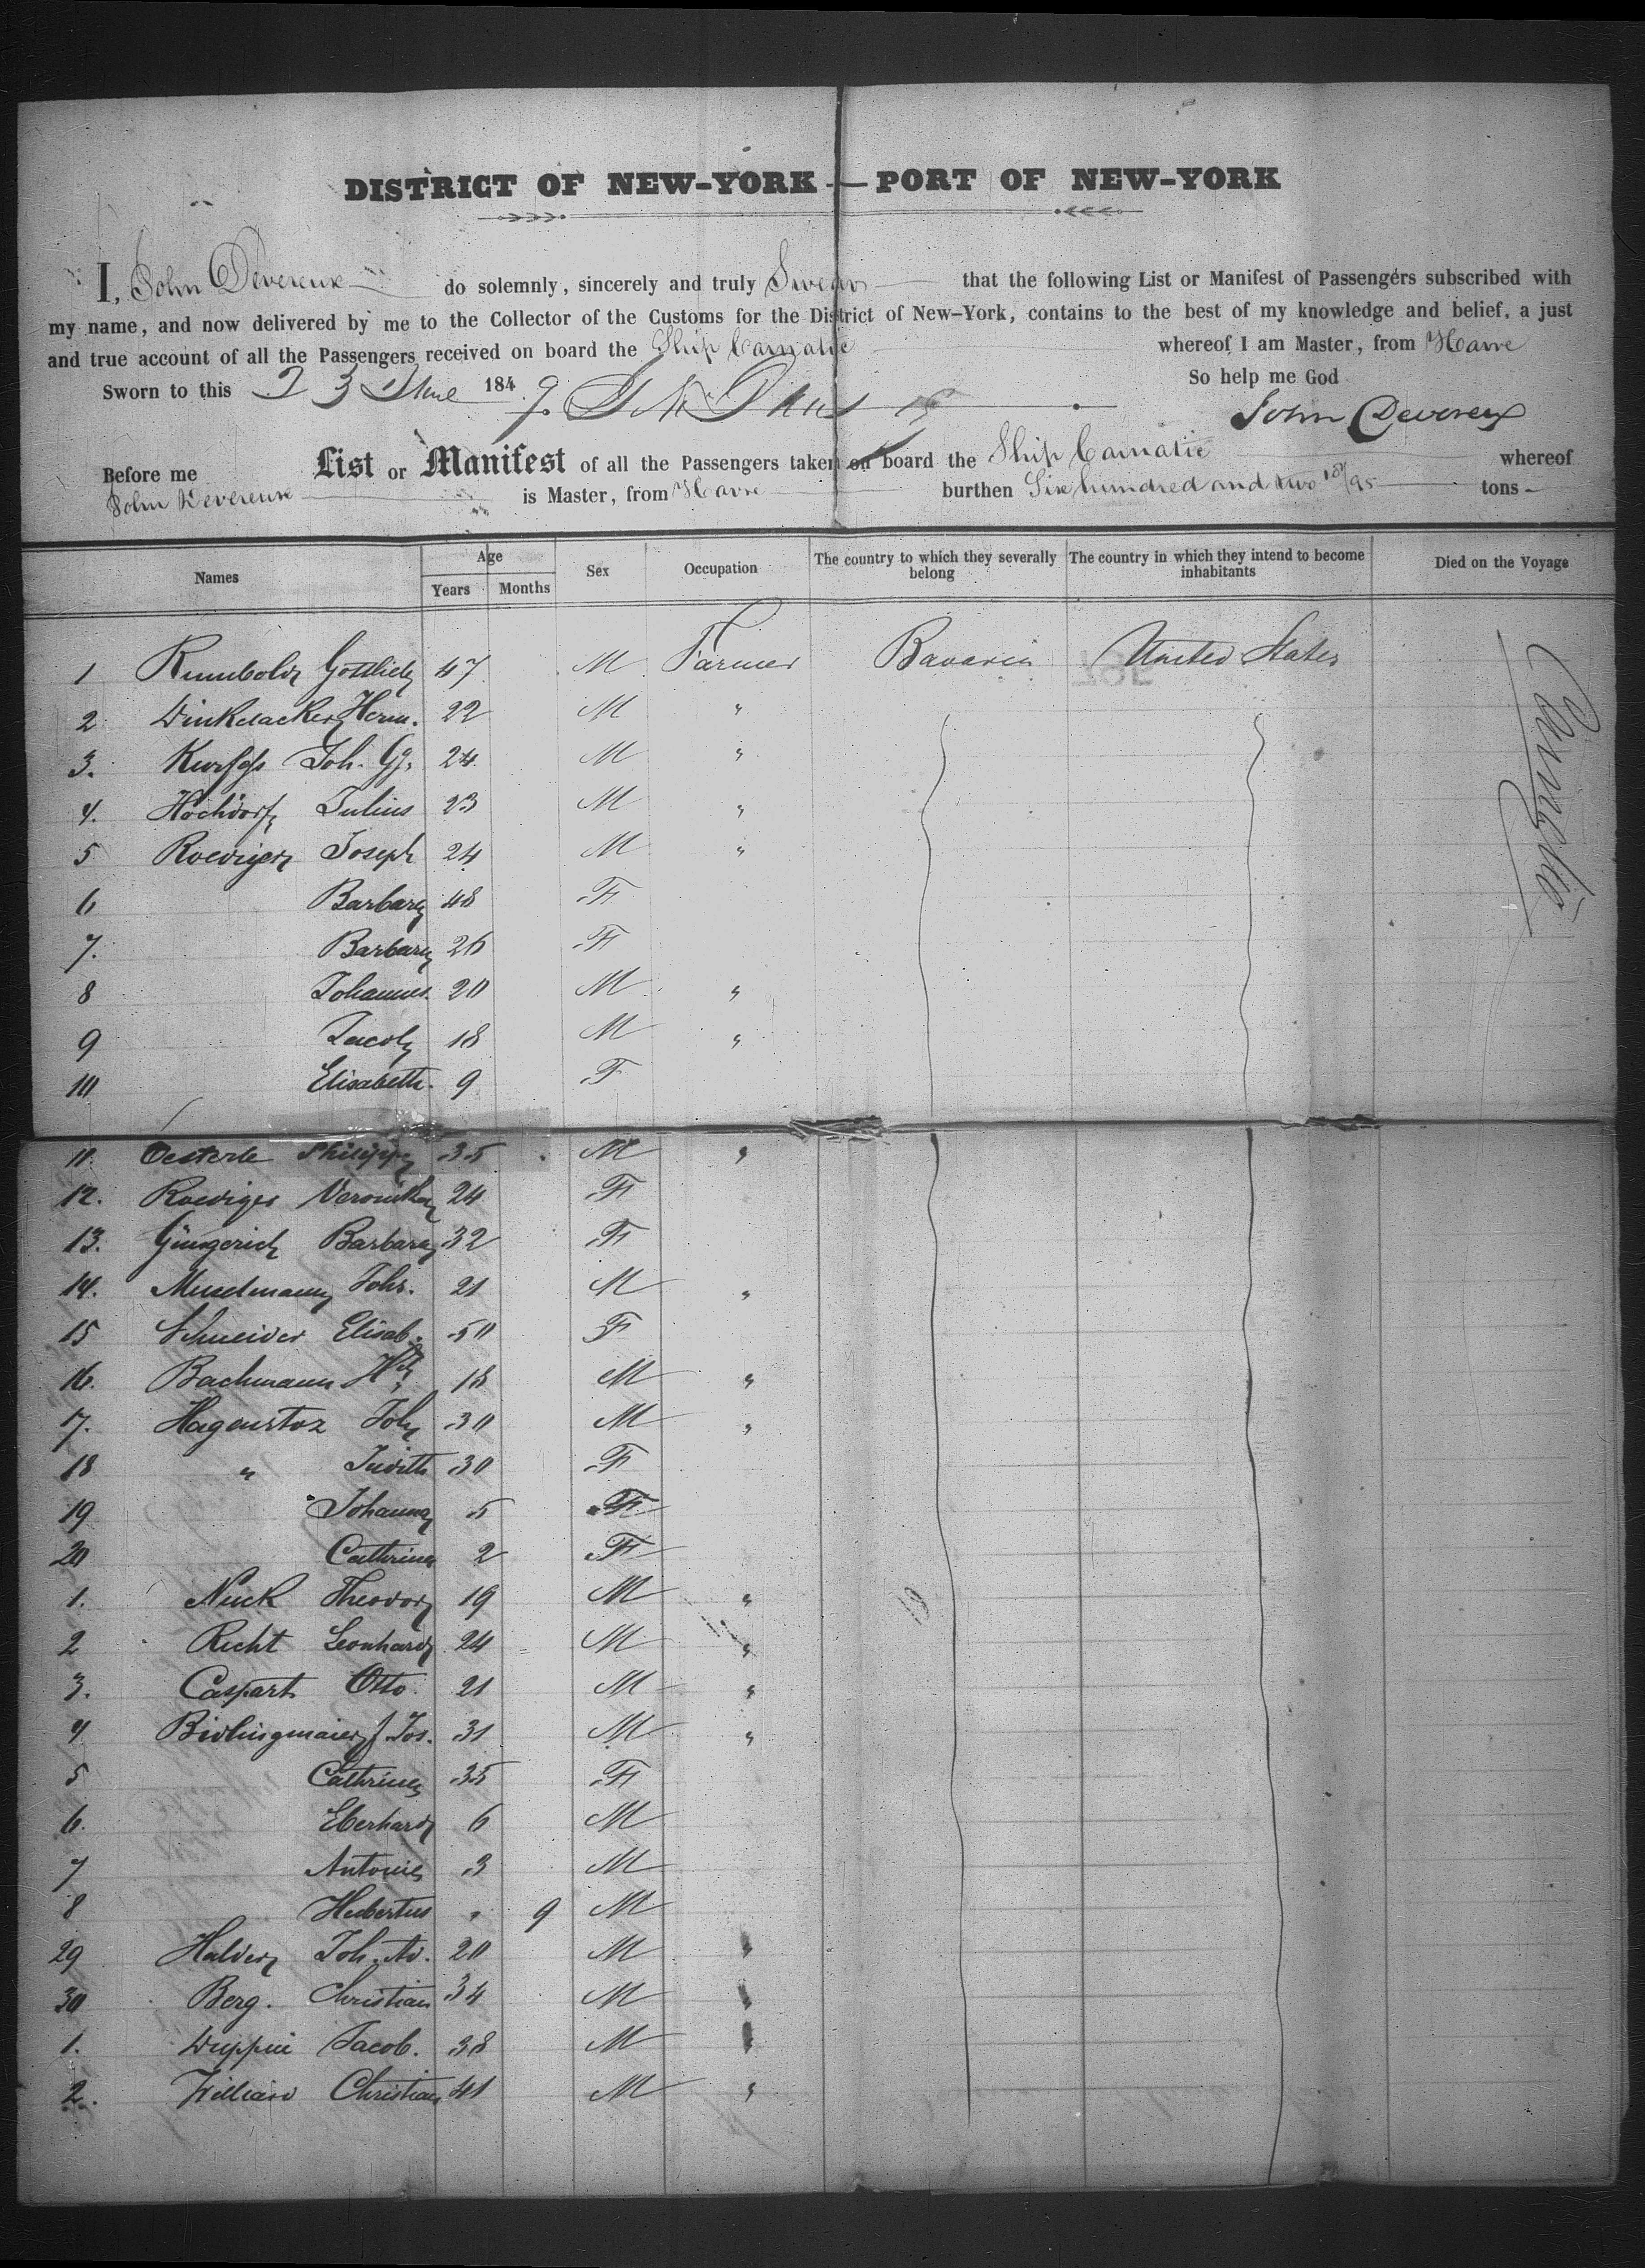 DISTRICT OF NEW-YORK — PORT OF NEW-YORK
I, John Devereux do solemnly, sincerely and truly Swear that the following List or Manifest of Passengers subscribed with
my name, and now delivered by me to the Collector of the Customs for the District of New-York, contains to the best of my knowledge and belief, a just
and true account of all the Passengers received on board the Ship Carnatic whereof I am Master, from Havre
Sworn to this 23 June 1849. So help me God
John Devereux
Before me List or Manifest of all the Passengers taken on board the Ship Carnatic whereof
John Devereux is Master, from Havre burthen Six hundred and two /95 tons
Names Age Years Months Sex Occupation The country to which they severally belong The country in which they intend to become inhabitants Died on the Voyage
Carnatic
1 Rumbold Gottlieb 47 M Farmer Bavaria United States
2 Dinkelacker Herm. 22 M "
3. Joh. Gg. 24 M "
4. Hochdorf Julius 23 M "
5 Roediger Joseph 24 M "
6 Barbara 48 F
7. Barbara 26 F
8 Johannes 20 M "
9 Jacob 18 M "
10 Elisabeth 9 F
11. Oesterle Philippe 35 M "
12. Roediger Veronika 24 F
13. Güngerich Barbara 32 F
14. Musselmann Johs. 21 M "
15 Schneider Elisab. 50 F
16. Bachmann 18 M "
17. Hagenstoz Joh 30 M "
18 " Judith 30 F
19 Johanna 5 F
20 Cathrina 2 F
1. Theodor 19 M "
2 Richt Leonhard 24 M "
3. Caspart Otto 21 M "
4 Bidlingmaier J. Jos. 31 M "
5 Cathrina 35 F
6. Eberhard 6 M
7 Antonie 3 M
8 Hubertus " 9 M
29 Halder Joh. Ad. 20 M "
30 Berg. Christian 34 M "
1. Jacob. 38 M "
2. Williard Christian 41 M "